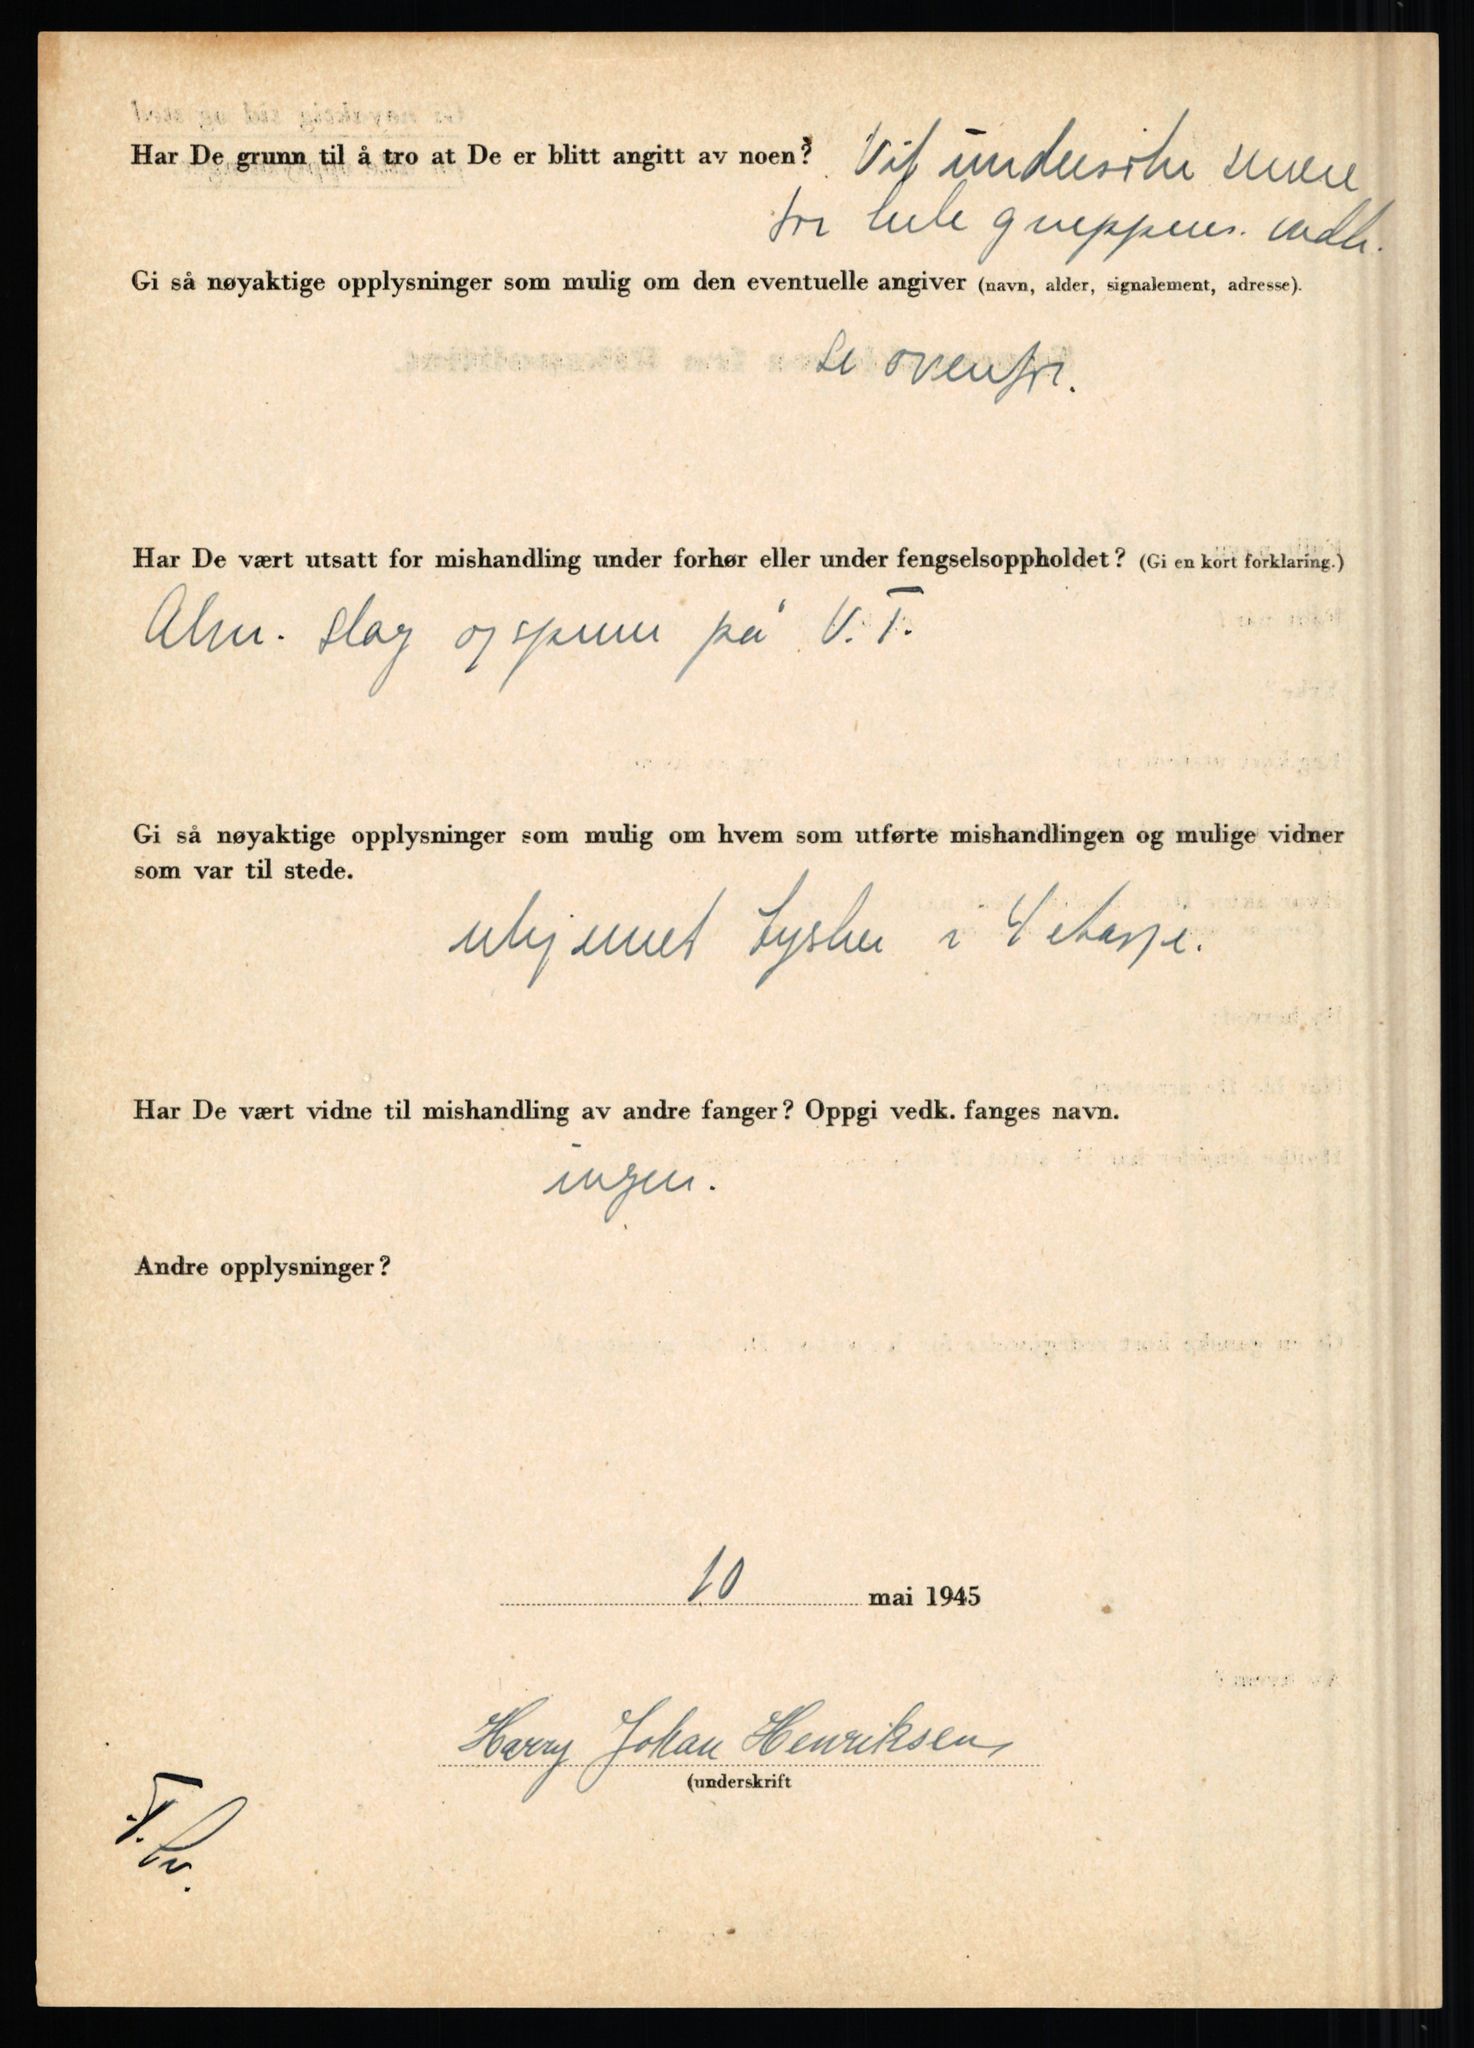 Har De grunn til å tro at De er blitt angitt av noen? Vil undersøke
for hele gruppens. vedk.
Gi så nøyaktige opplysninger som mulig om den eventuelle angiver (navn, alder, signalement, adresse).
Se ovenfor.
Har De vært utsatt for mishandling under forhør eller under fengselsoppholdet? (Gi en kort forklaring.)
Alm. slag og spenn på V.T.
Gi så nøyaktige opplysninger som mulig om hvem som utførte mishandlingen og mulige vidner
som var til stede.
ukjennet tysker i etasje.
Har De vært vidne til mishandling av andre fanger? Oppgi vedk. fanges navn.
ingen.
Andre opplysninger?
10 mai 1945
Harry Johan Henriksen
(underskrift